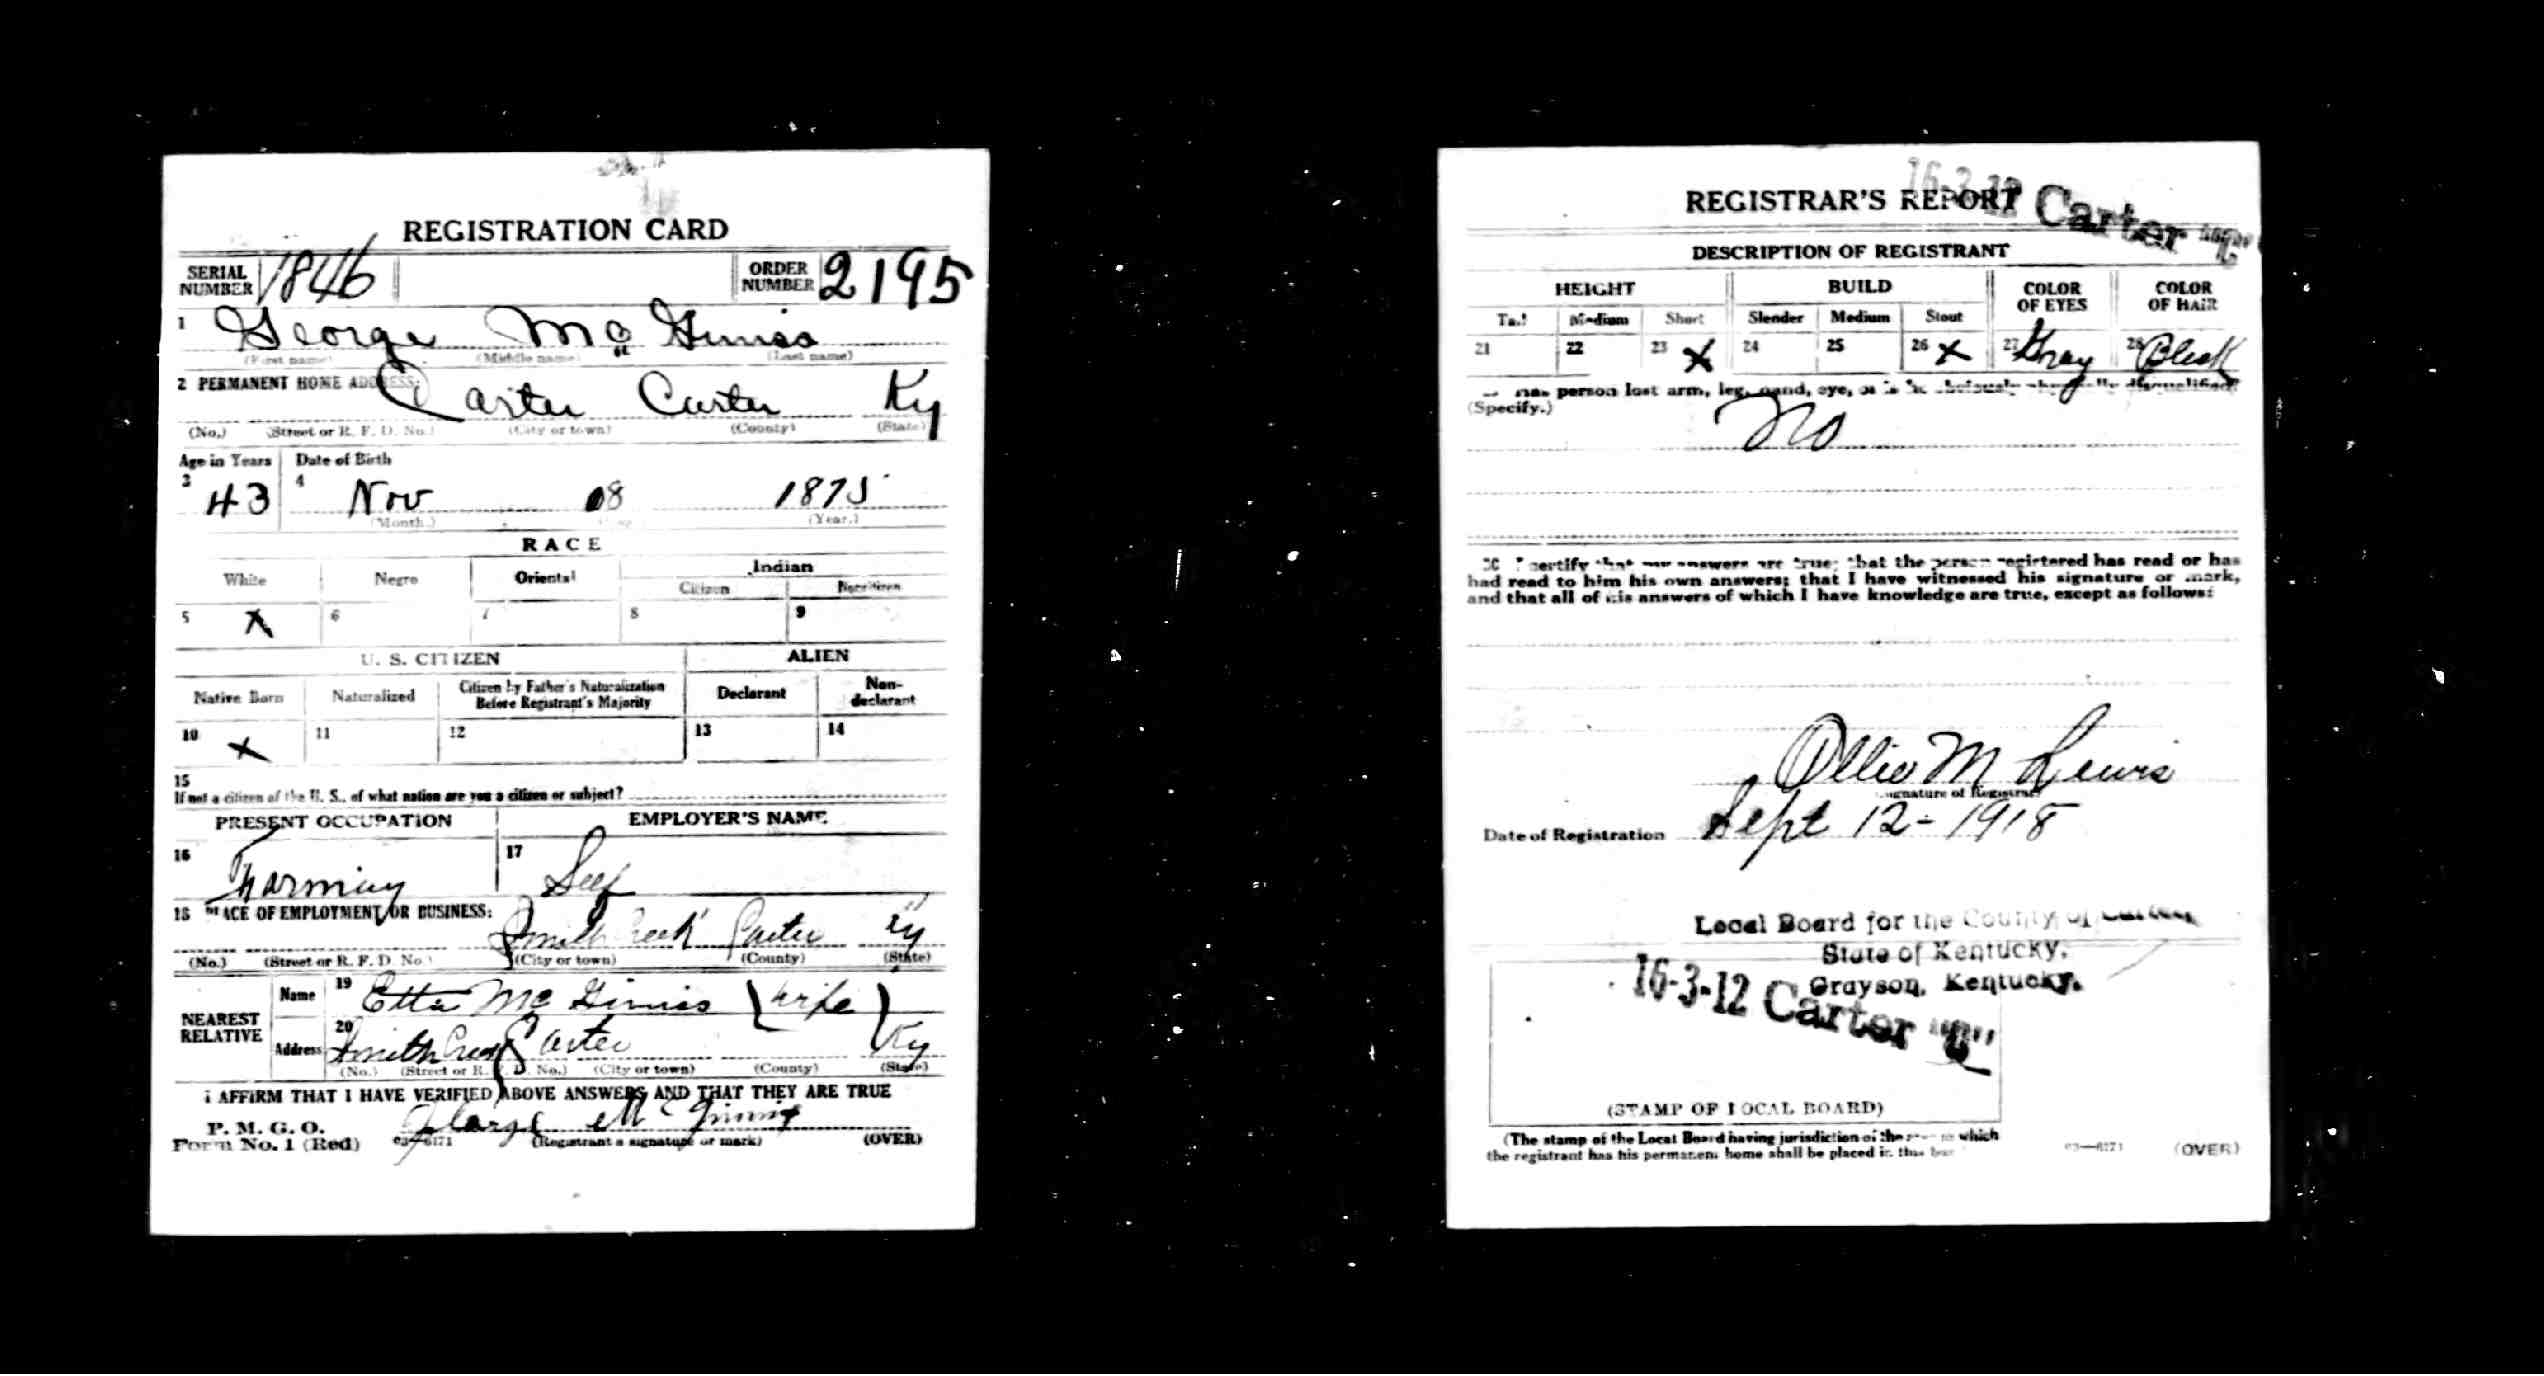 REGISTRATION CARD
SERIAL NUMBER 1846 ORDER NUMBER 2195
1 George Mc Giniss
(First name) (Middle name) (Last name)
2 PERMANENT HOME ADDRESS:
Carter Carter Ky
(No.) (Street or R. F. D. No.) (City or town) (County) (State)
Age in Years Date of Birth
3 43 4 Nov 08 1875
(Month.) (Year.)
RACE
White Negro Oriental Indian
Citizen Noncitizen
5 X 6 7 8 9
U. S. CITIZEN ALIEN
Native Born Naturalized Citizen by Father's Naturalization Before Registrant's Majority Declarant Non-declarant
10 X 11 12 13 14
15
If not a citizen of the U. S., of what nation are you a citizen or subject?
PRESENT OCCUPATION EMPLOYER'S NAME
16 Farming 17 Self
18 PLACE OF EMPLOYMENT OR BUSINESS:
Smith Creek Carter Ky
(No.) (Street or R. F. D. No.) (City or town) (County) (State)
NEAREST RELATIVE Name 19 Etta Mc Giniss (wife)
Address 20 Smith Creek Carter Ky
(No.) (Street or R. F. D. No.) (City or town) (County) (State)
I AFFIRM THAT I HAVE VERIFIED ABOVE ANSWERS AND THAT THEY ARE TRUE
P. M. G. O.
Form No. 1 (Red) 03—6171 (Registrant's signature or mark) (OVER)
16-3-12 Carter
REGISTRAR'S REPORT
DESCRIPTION OF REGISTRANT
HEIGHT BUILD COLOR OF EYES COLOR OF HAIR
Tall Medium Short Slender Medium Stout
21 22 23 X 24 25 26 X 27 Gray 28 Black
Has person lost arm, leg, hand, eye, or is he obviously physically disqualified?
(Specify.)
No
30 I certify that my answers are true; that the person registered has read or has
had read to him his own answers; that I have witnessed his signature or mark,
and that all of his answers of which I have knowledge are true, except as follows:
Ollie M Lewis
(Signature of Registrar)
Date of Registration Sept 12-1918
Local Board for the County of Carter
State of Kentucky,
Grayson, Kentucky.
16-3-12 Carter
(STAMP OF LOCAL BOARD)
(The stamp of the Local Board having jurisdiction of the area in which
the registrant has his permanent home shall be placed in this box
03—6171 (OVER)